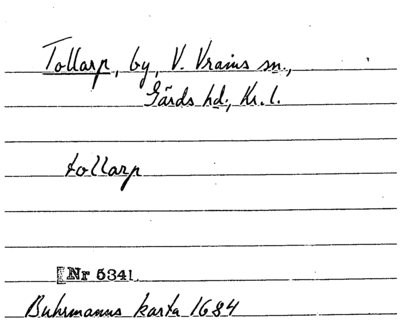 Tollarp, by, V. Vrams sn.,
Gärds hd., Kr. l.
tollarp
Nr 5341.
Buhrmanns karta 1684